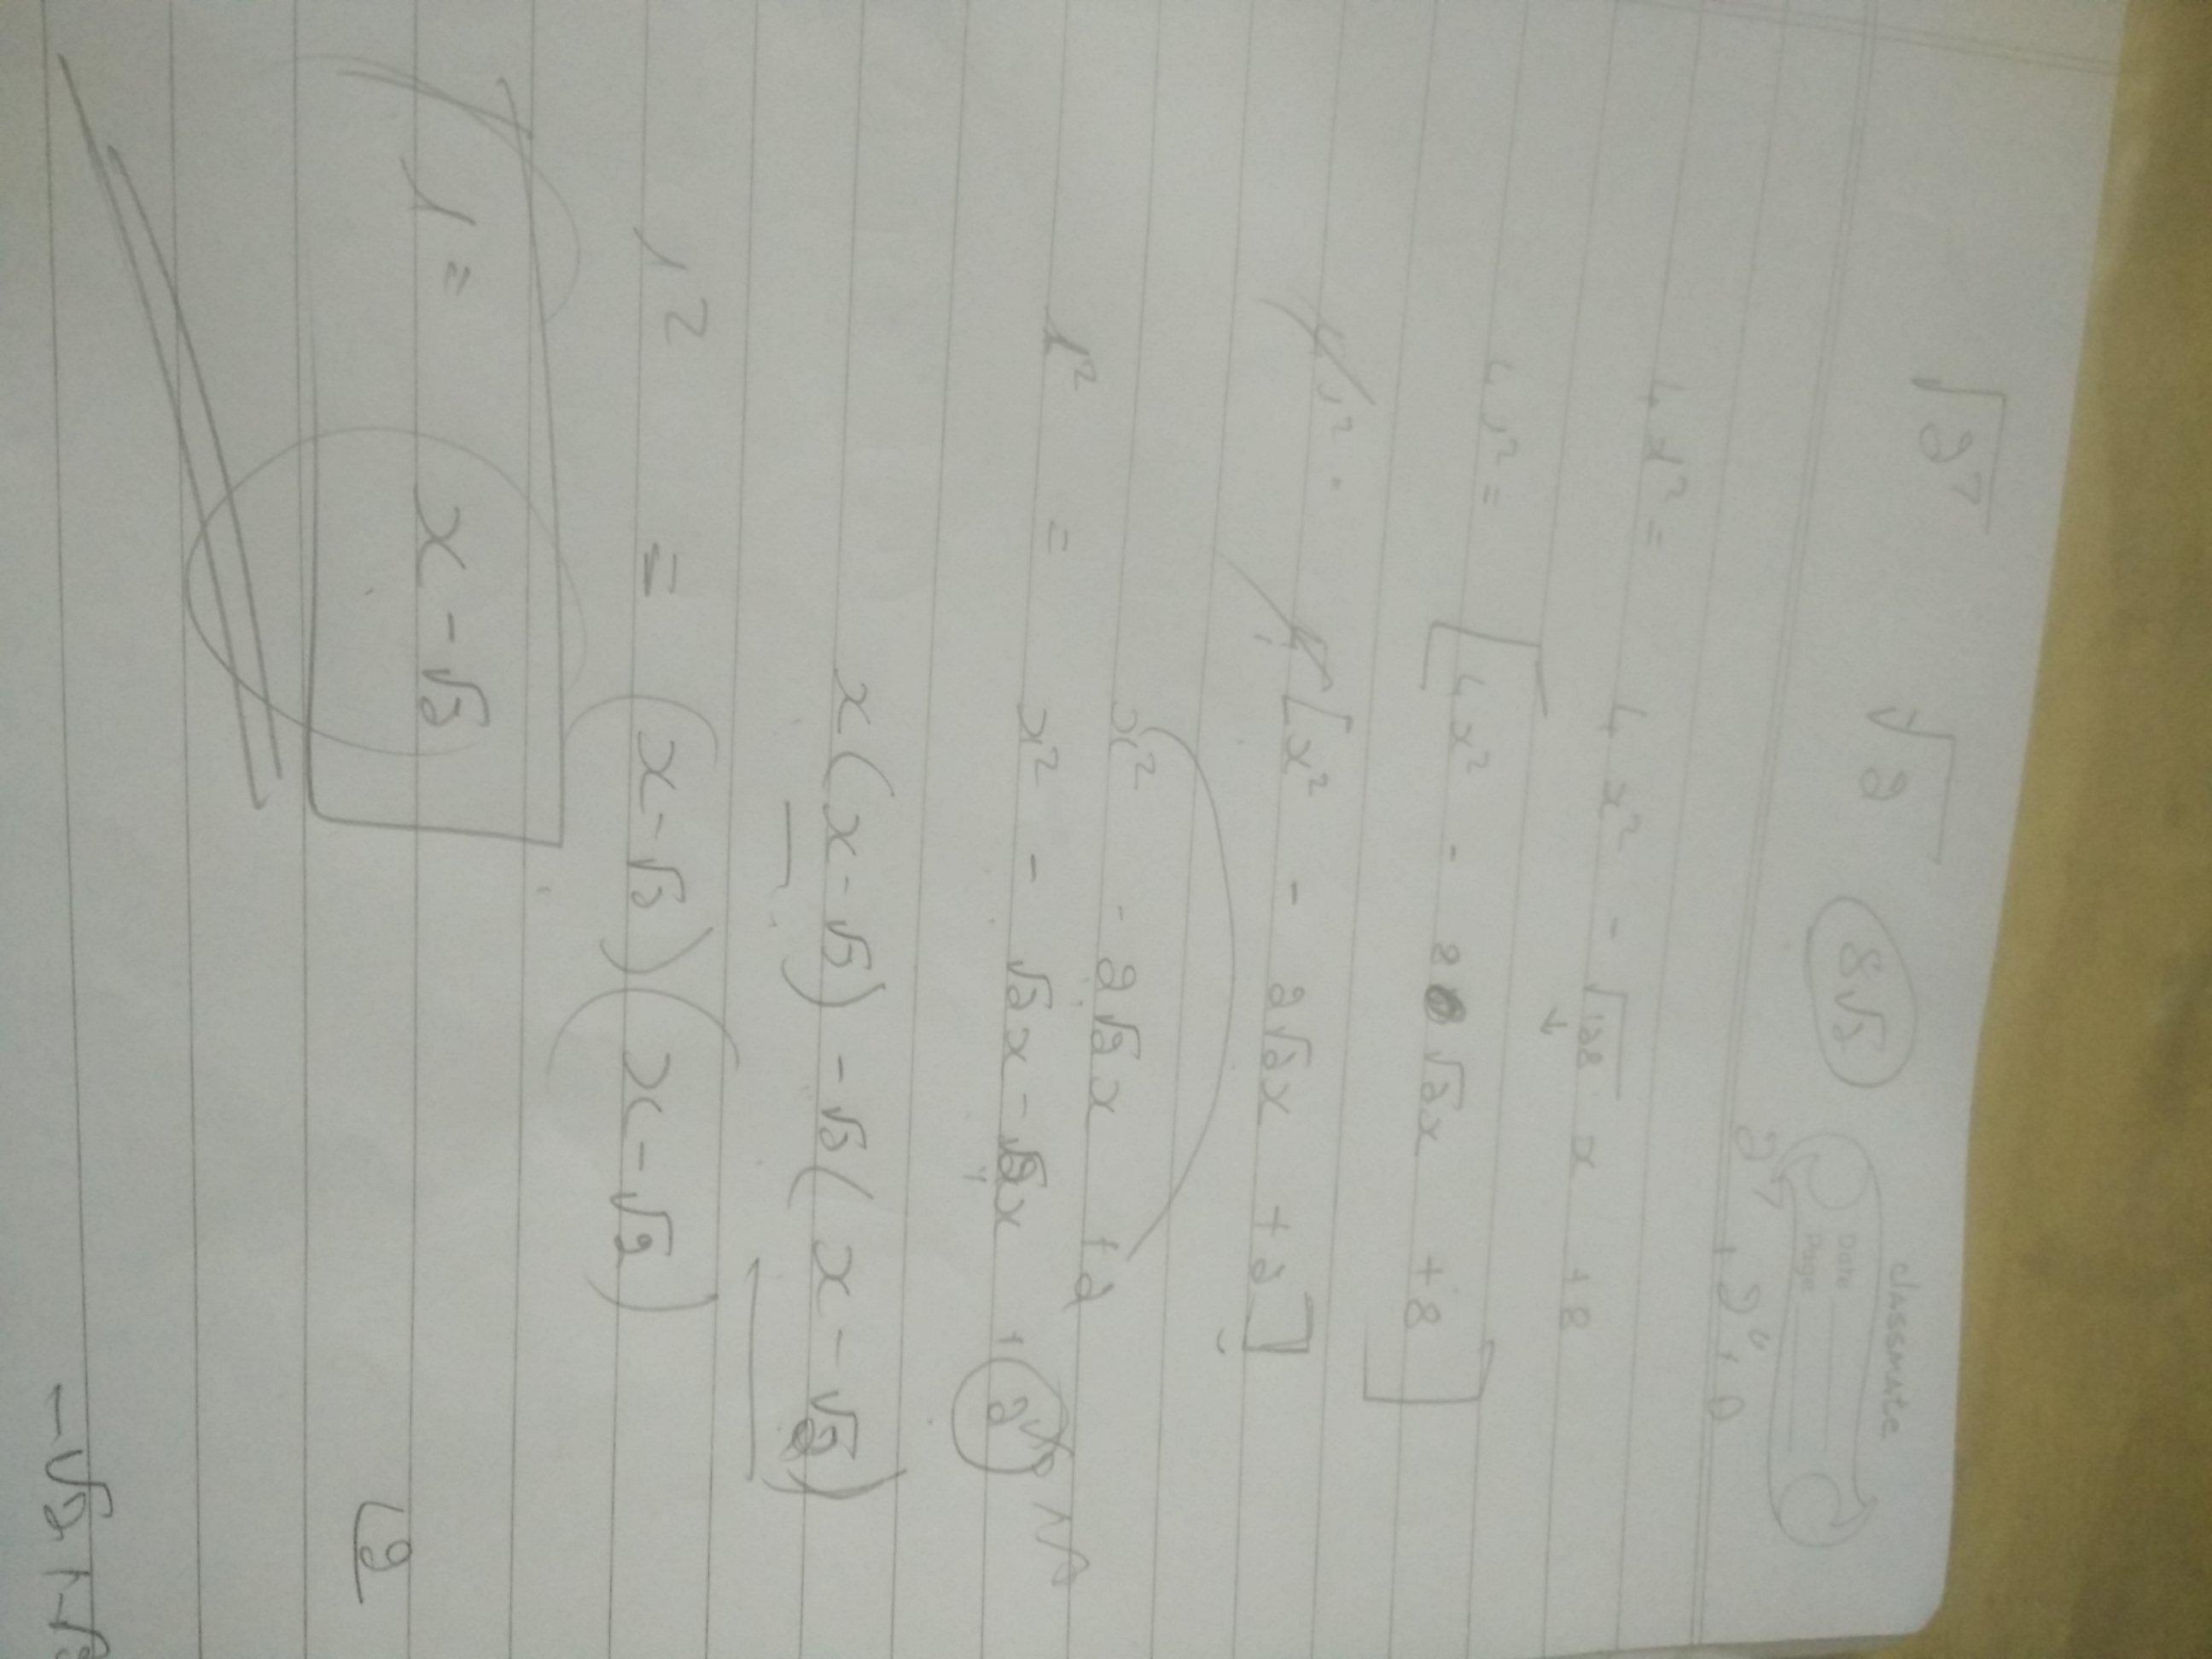 classmate
Date
Page
√2⁷ √2 8√2
4s² = 4x² - √128 x + 8
4s² = [4x² - 8√2x + 8]
4s² = 4[x² - 2√2x + 2]
x² - 2√2x + 2
s² = x² - √2x - √2x + 2
x(x-√2) - √2(x-√2)
s² = (x-√2)(x-√2)
s = x-√2